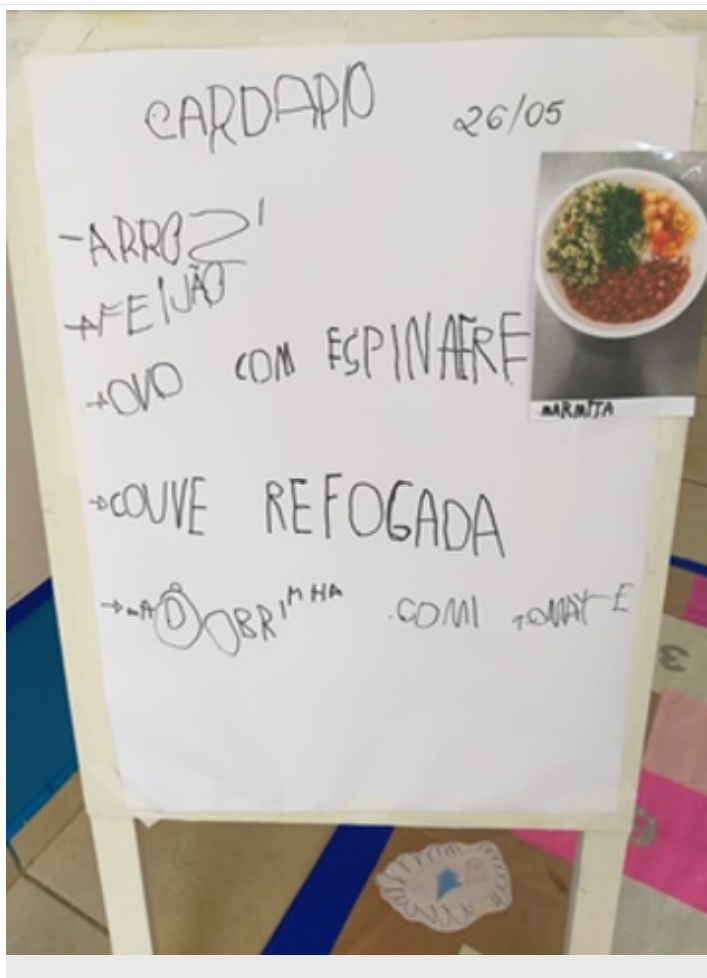 CARDAPIO 26/05
-ARROZ
→FEIJÃO
→OVO COM ESPINAFRE
MARMITA
→COUVE REFOGADA
COM TOMATE